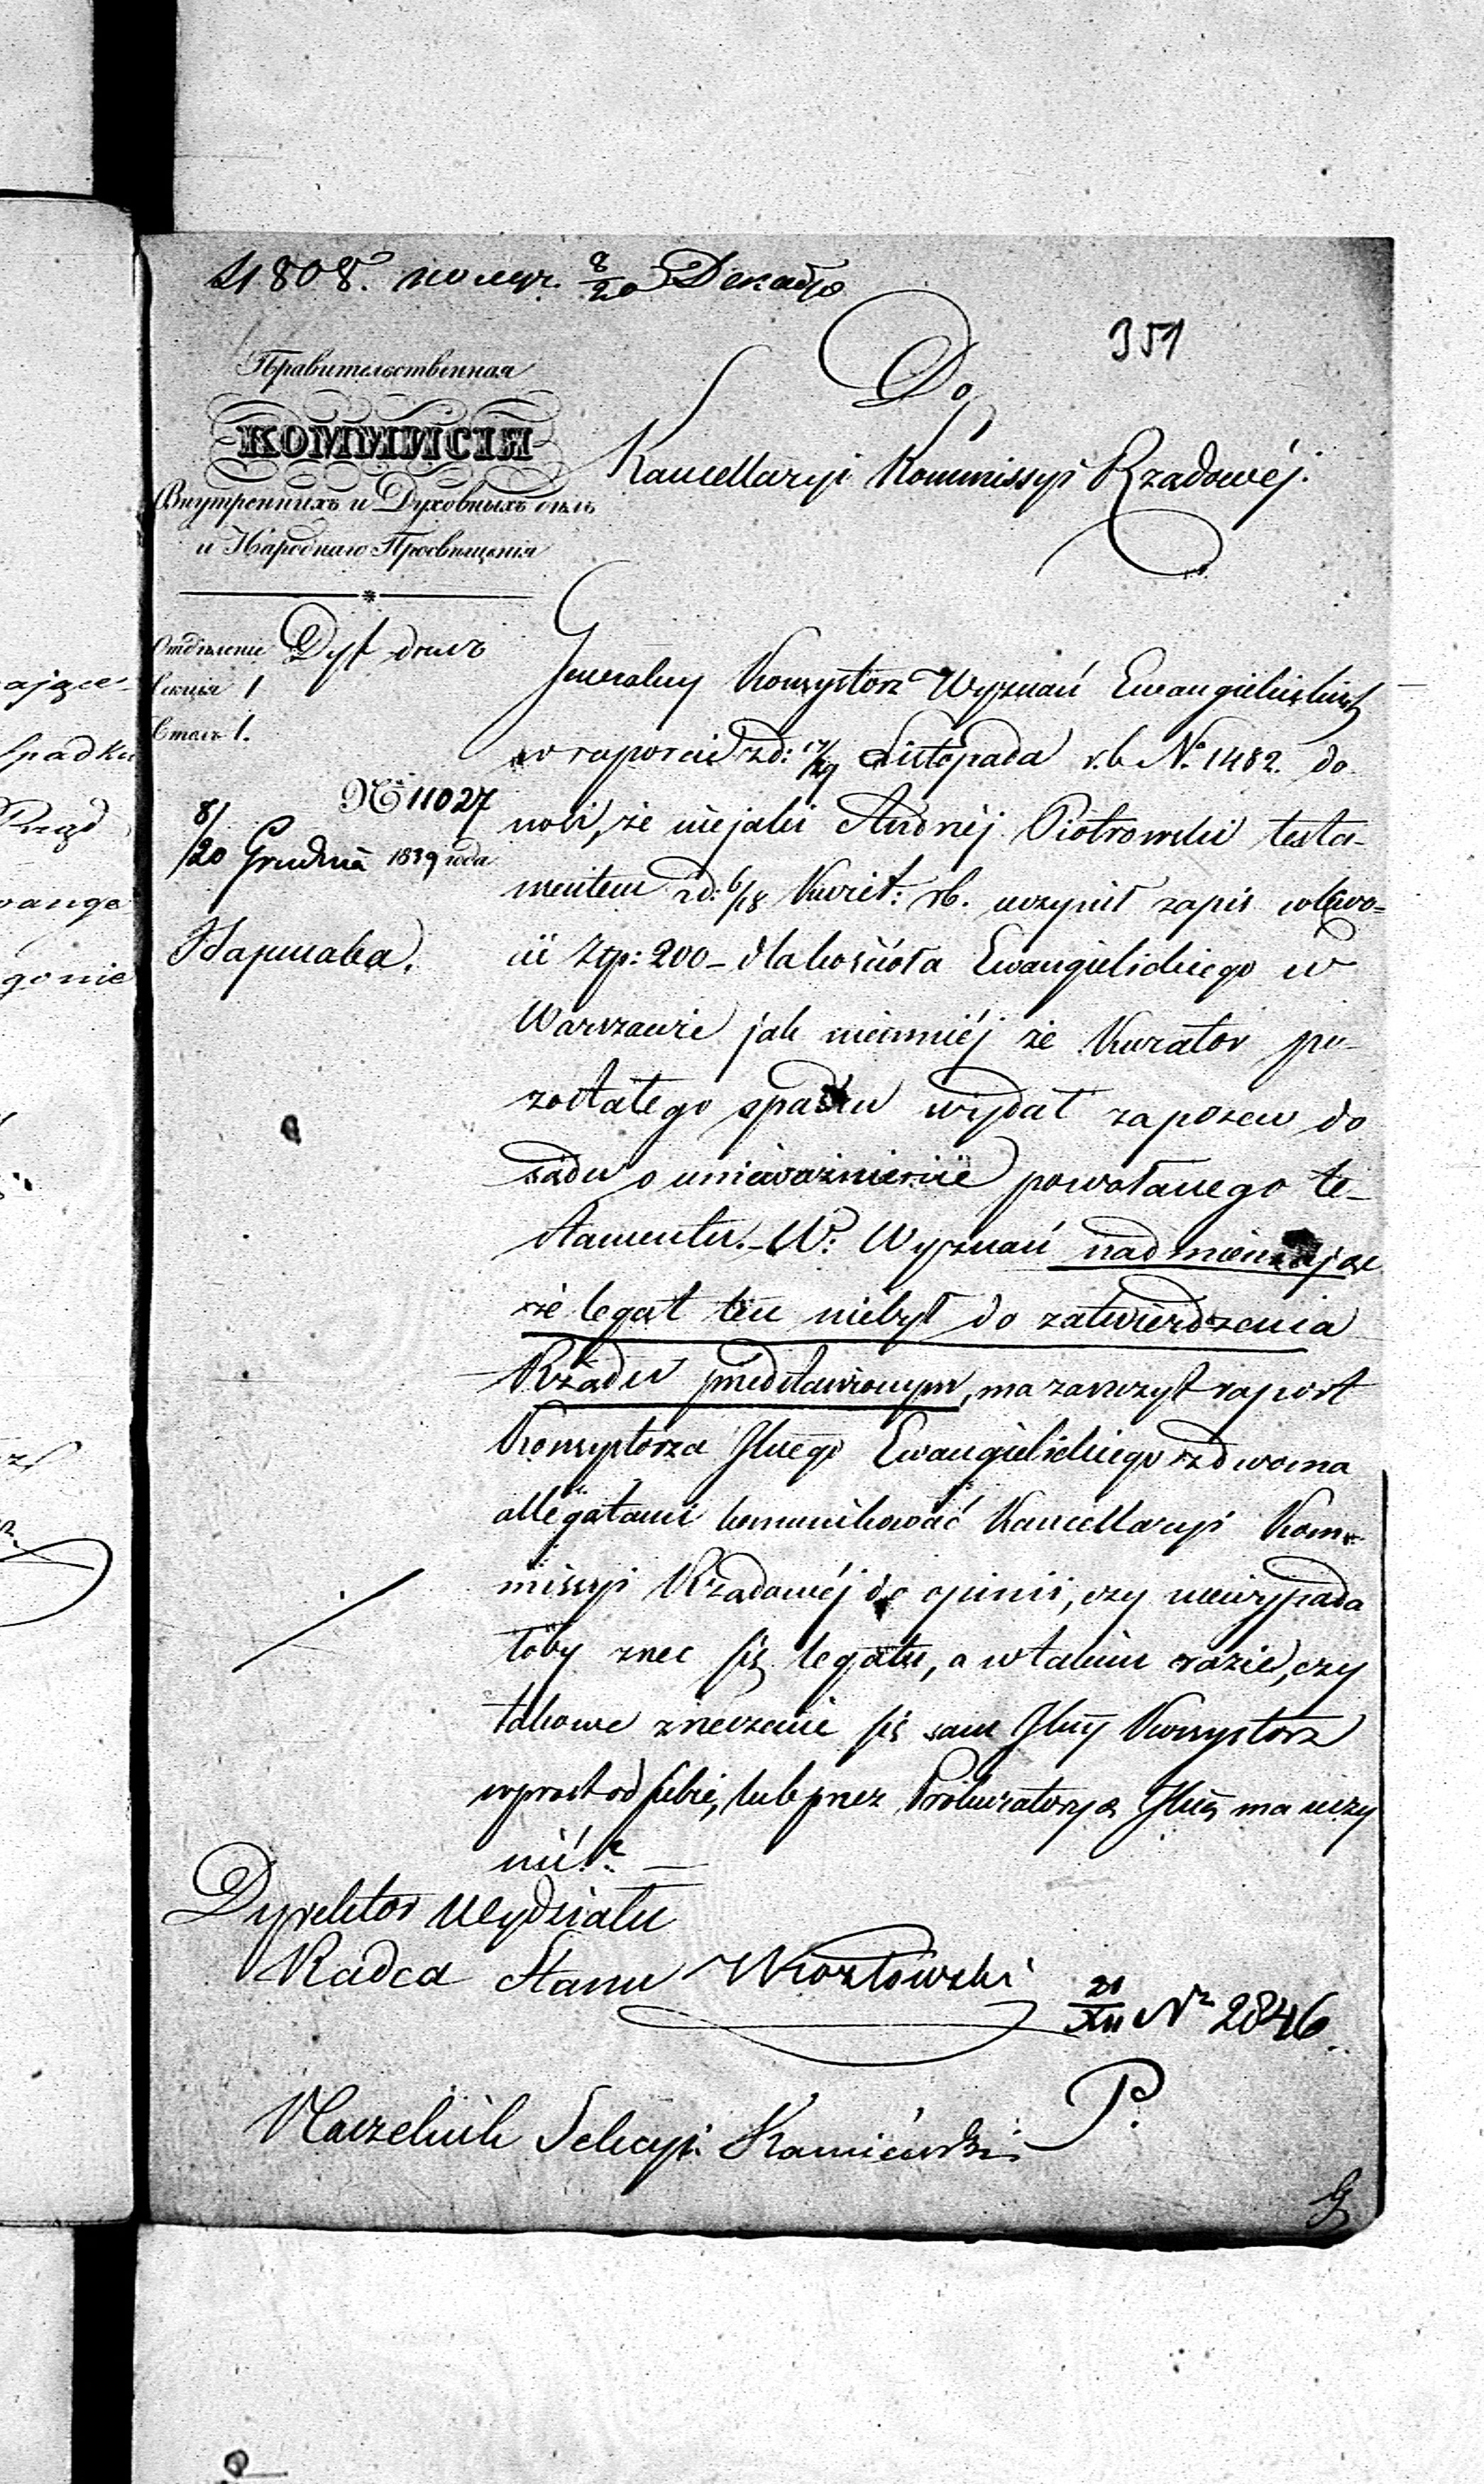 4808. получ. 8/20 Декабр
351
Правительственная
КОММИСІЯ
Внутреннихъ и Духовныхъ дѣлъ
и Народнаго Просвѣщенія
Отдѣленіе Дух дѣлъ
Секція 1
Столъ 1.
№ 11027
8/20 Grudnia 1839 года
Варшава.
Do
Kancellaryi Kommissyi Rządowéj.
Generalny Konsystorz Wyznań Ewangielickich
w raporcie zd: 17/29 Listopada r.b. No. 1482. do
nosi, że niejaki Andrzéj Piotrowski testa-
mentem zd: 6/18 Kwiet: rb. uczynił zapis w kwo=
cie Złp: 200 – dla kościoła Ewangielickiego w
Warszawie jak niemniéj że Kurator po-
zostałego spadku wydał zapozew do
sądu o unieważnienie powołanego te-
stamentu. – W. Wyznań nadmieniając
że legat ten niebył do zatwierdzenia
Rządu przedstawionym, ma zaszczyt raport
Konsystorza Glnego Ewangielickiego z dwoma
allegatami komunikować Kancellaryi Kom-
missyi Rządowéj do opinii, czy niewypada
łoby zrzec się legatu, a w takim razie, czy
takowe zrzeczenie się sam Glny Konsystorz
wprost od siebie, lub przez Prokuratoryą Glną ma uczy
nić? —
Dyrektor Wydziału
Radca Stanu Kozłowski
21/XII Nr 2846.
P.
Naczelnik Sekcyi Kamieński